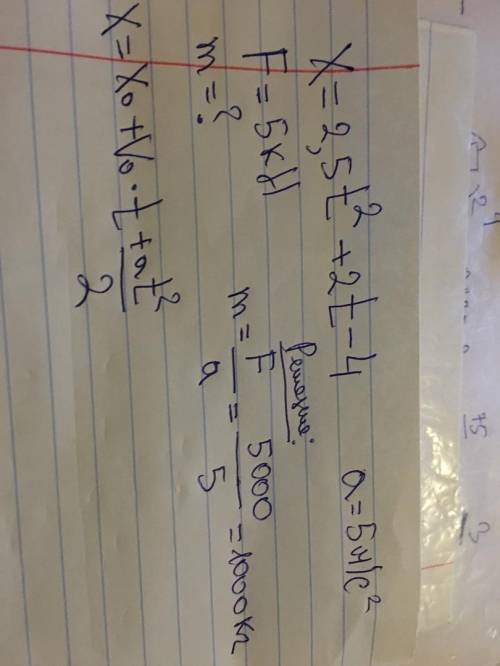 X = 2,5t² + 2t - 4
a = 5 м/с²
F = 5 кН
m = ?
Решение:
m = F/a = 5000/5 = 1000 кг
X = X₀ + V₀ · t + at²/2